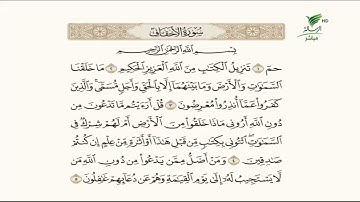 سُورَةُ الأَحْقَافِ
بِسْمِ اللَّهِ الرَّحْمَٰنِ الرَّحِيمِ
حمٓ ١ تَنزِيلُ ٱلْكِتَٰبِ مِنَ ٱللَّهِ ٱلْعَزِيزِ ٱلْحَكِيمِ ٢ مَا خَلَقْنَا
ٱلسَّمَٰوَٰتِ وَٱلْأَرْضَ وَمَا بَيْنَهُمَآ إِلَّا بِٱلْحَقِّ وَأَجَلٍ مُّسَمًّى وَٱلَّذِينَ
كَفَرُوا۟ عَمَّآ أُنذِرُوا۟ مُعْرِضُونَ ٣ قُلْ أَرَءَيْتُم مَّا تَدْعُونَ مِن
دُونِ ٱللَّهِ أَرُونِى مَاذَا خَلَقُوا۟ مِنَ ٱلْأَرْضِ أَمْ لَهُمْ شِرْكٌ فِى
ٱلسَّمَٰوَٰتِ ٱئْتُونِى بِكِتَٰبٍ مِّن قَبْلِ هَٰذَآ أَوْ أَثَٰرَةٍ مِّنْ عِلْمٍ إِن كُنتُمْ
صَٰدِقِينَ ٤ وَمَنْ أَضَلُّ مِمَّن يَدْعُوا۟ مِن دُونِ ٱللَّهِ مَن
لَّا يَسْتَجِيبُ لَهُۥٓ إِلَىٰ يَوْمِ ٱلْقِيَٰمَةِ وَهُمْ عَن دُعَآئِهِمْ غَٰفِلُونَ ٥
HD
مباشر